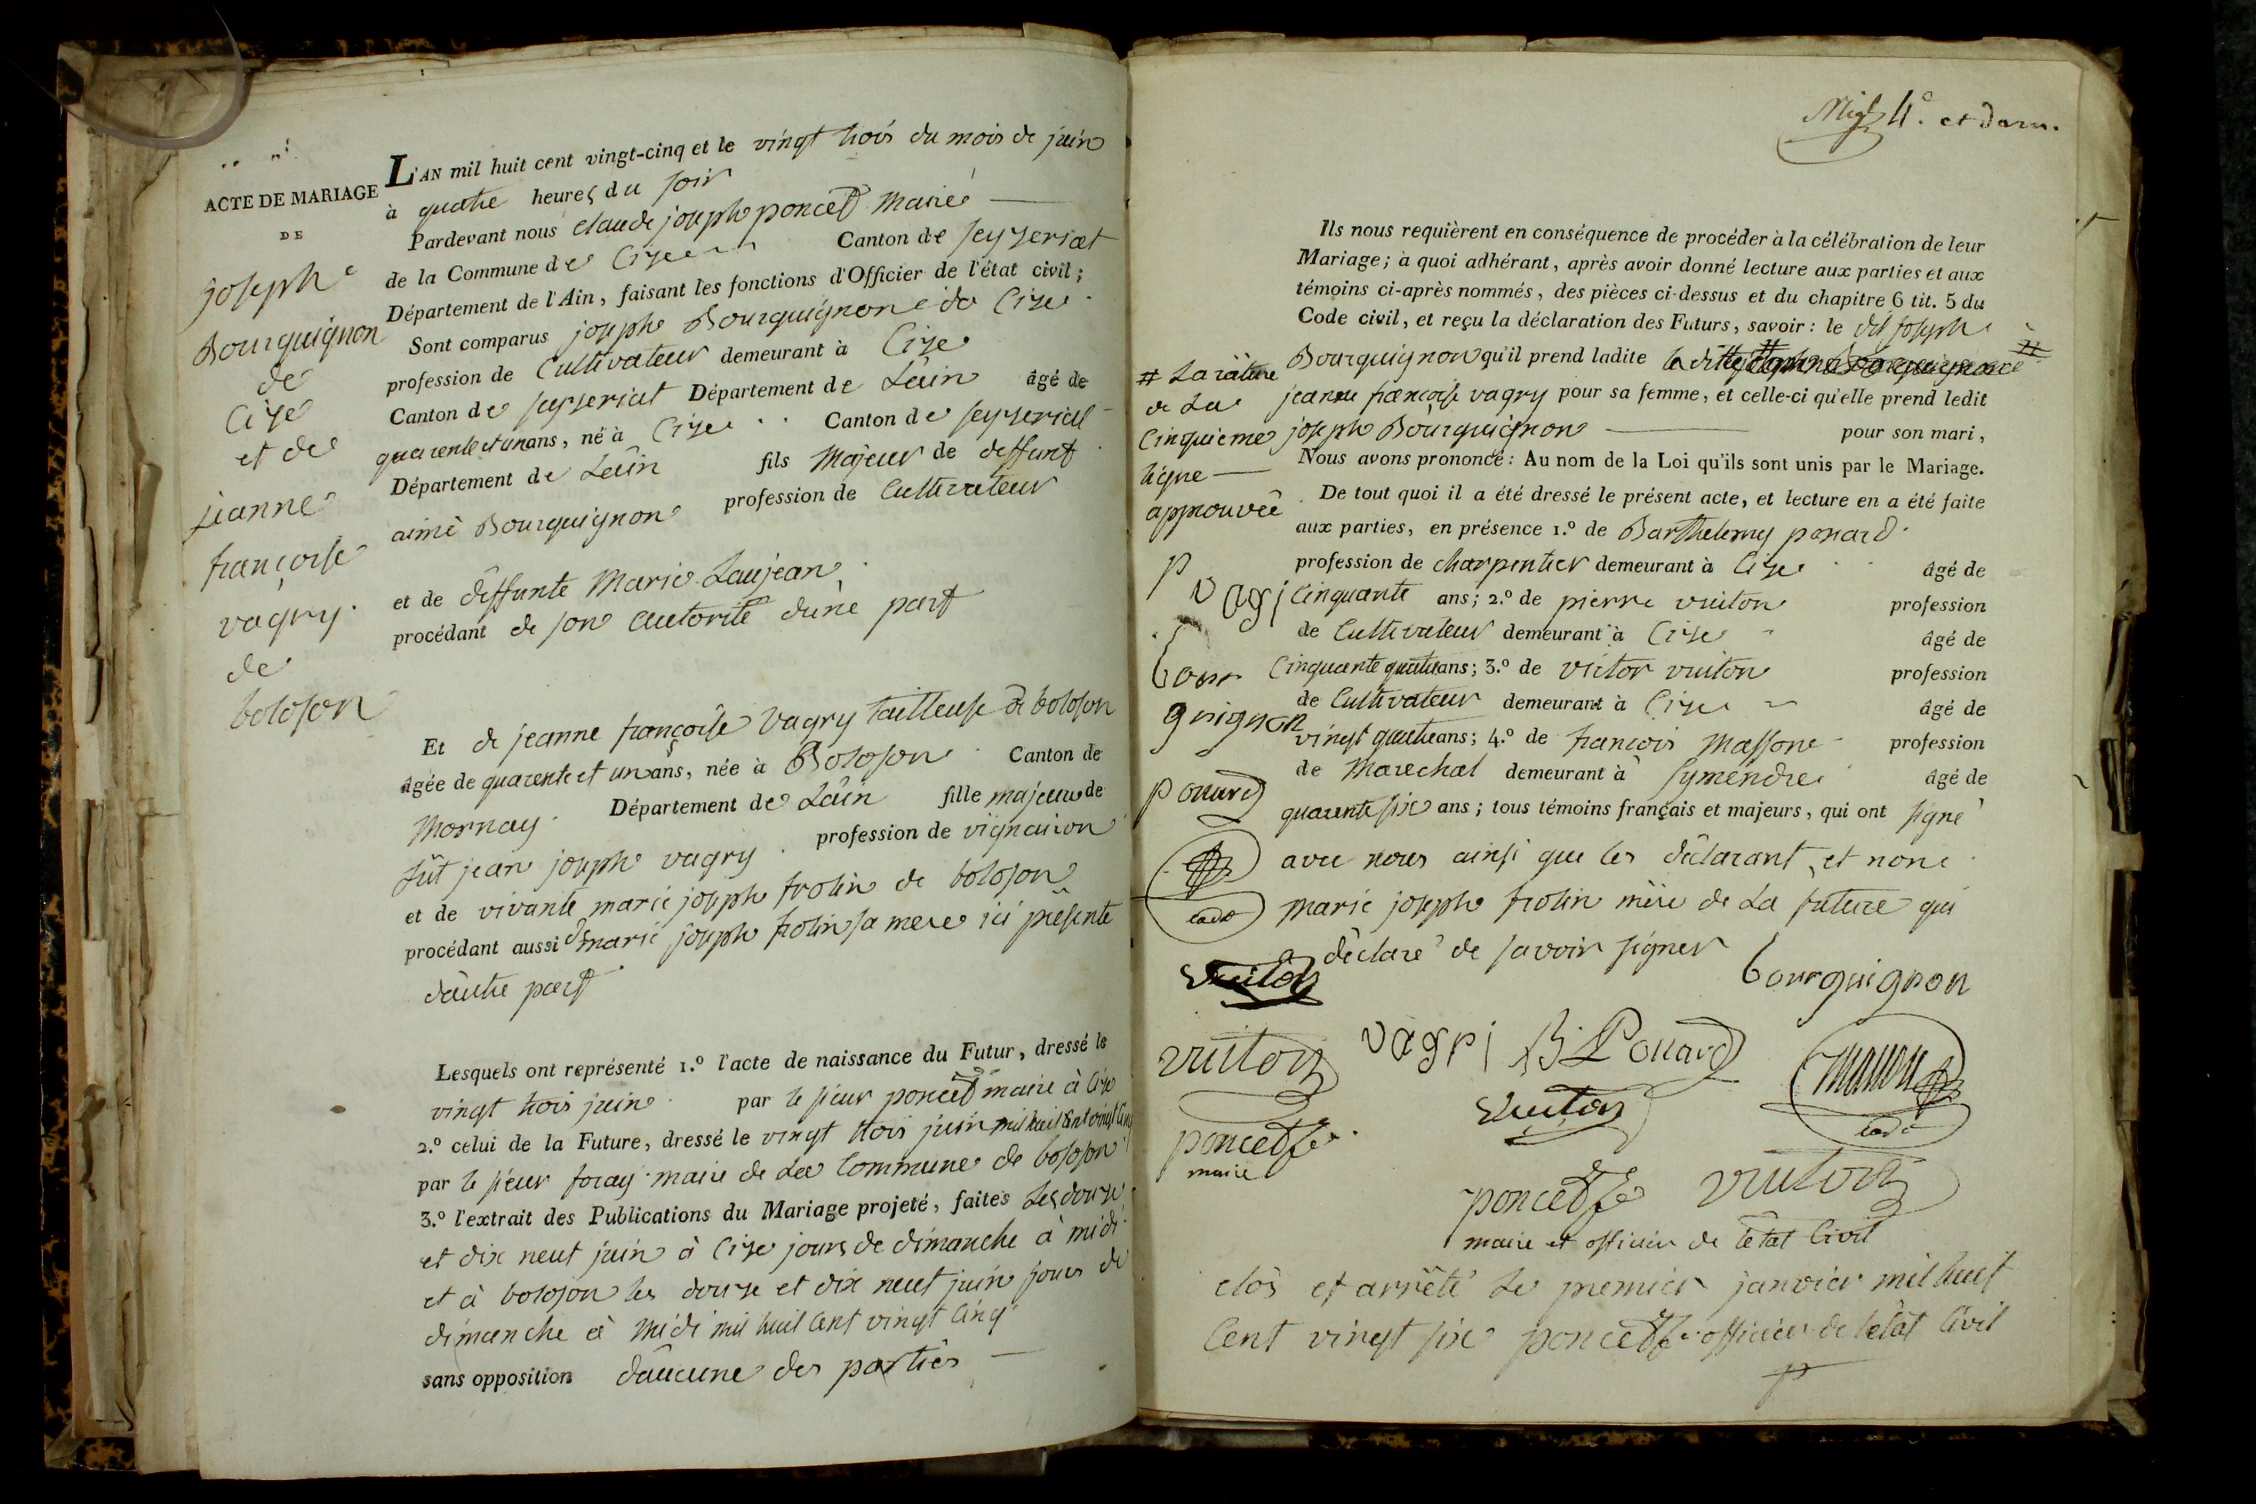 ACTE DE MARIAGE
DE
joseph
Bourguignon
de
Cize
et de
jeanne
françoise
vagry
de
boloson
L'AN mil huit cent vingt-cinq et le vingt trois du mois de juin
à quatre heures du soir
Pardevant nous claude joseph poncet Maire
de la Commune de Cize Canton de seyzeriat
Département de l'Ain, faisant les fonctions d'Officier de l'état civil;
Sont comparus joseph Bourguignon de Cize
profession de Cultivateur demeurant à Cize
Canton de seyzeriat Département de Lâin âgé de
quarente et un ans, né à Cize Canton de seyzeriat
Département de Lâin fils Majeur de deffunt
aimé Bourguignon profession de Cultivateur
et de deffunte Marie Laujean
procédant de son autorité dune part
Et de jeanne françoise vagry tailleuse de boloson
âgée de quarente et un ans, née à Boloson Canton de
Mornay Département de Lâin fille majeure de
fût jean joseph vagry profession de vigneron
et de vivante marie joseph frolin de boloson
procédant aussi de marie joseph frolin sa mere ici présente
dautre part
Lesquels ont représenté 1.º l'acte de naissance du Futur, dressé le
vingt trois juin par le sieur poncet maire à Cize
2.º celui de la Future, dressé le vingt trois juin mil huit cent vingt cinq
par le sieur foray maire de La Commune de boloson
3.º l'extrait des Publications du Mariage projeté, faites Les douze
et dix neuf juin à Cize jours de dimanche à midi
et à boloson les douze et dix neuf juin jours de
dimanche à Midi mil huit Cent vingt Cinq
sans opposition daucune des parties
4.º et dern.
Ils nous requièrent en conséquence de procéder à la célébration de leur
Mariage; à quoi adhérant, après avoir donné lecture aux parties et aux
témoins ci-après nommés, des pièces ci-dessus et du chapitre 6 tit. 5 du
Code civil, et reçu la déclaration des Futurs, savoir: le dit joseph
Bourguignon qu'il prend ladite
jeanne francoise vagry pour sa femme, et celle-ci qu'elle prend ledit
joseph Bourguignon pour son mari,
Nous avons prononcé: Au nom de la Loi qu'ils sont unis par le Mariage.
De tout quoi il a été dressé le présent acte, et lecture en a été faite
aux parties, en présence 1.º de Barthelemy ponard
profession de charpentier demeurant à Cize âgé de
Cinquante ans; 2.º de pierre vuiton profession
de Cultivateur demeurant à Cize âgé de
Cinquante quatre ans; 3.º de victor vuiton profession
de Cultivateur demeurant à Cize âgé de
vingt quatre ans; 4.º de francois Massone profession
de Marechal demeurant à Symendre âgé de
quarente six ans; tous témoins français et majeurs, qui ont signé
avec nous ainsi que les déclarant, et non
marie joseph frolin mère de La future qui
a déclaré de savoir signer
# La râture
de La
Cinquieme
ligne
approuvée
p
vagi
bour
guignon
ponard
vuiton
vuiton
poncet
maire
bourguignon
vagri B Ponard
vuiton
poncet vuiton
maire et officier de létat Civil
clos et arrêté Le premier janvier mil huit
Cent vingt six poncet officier de létat Civil
p